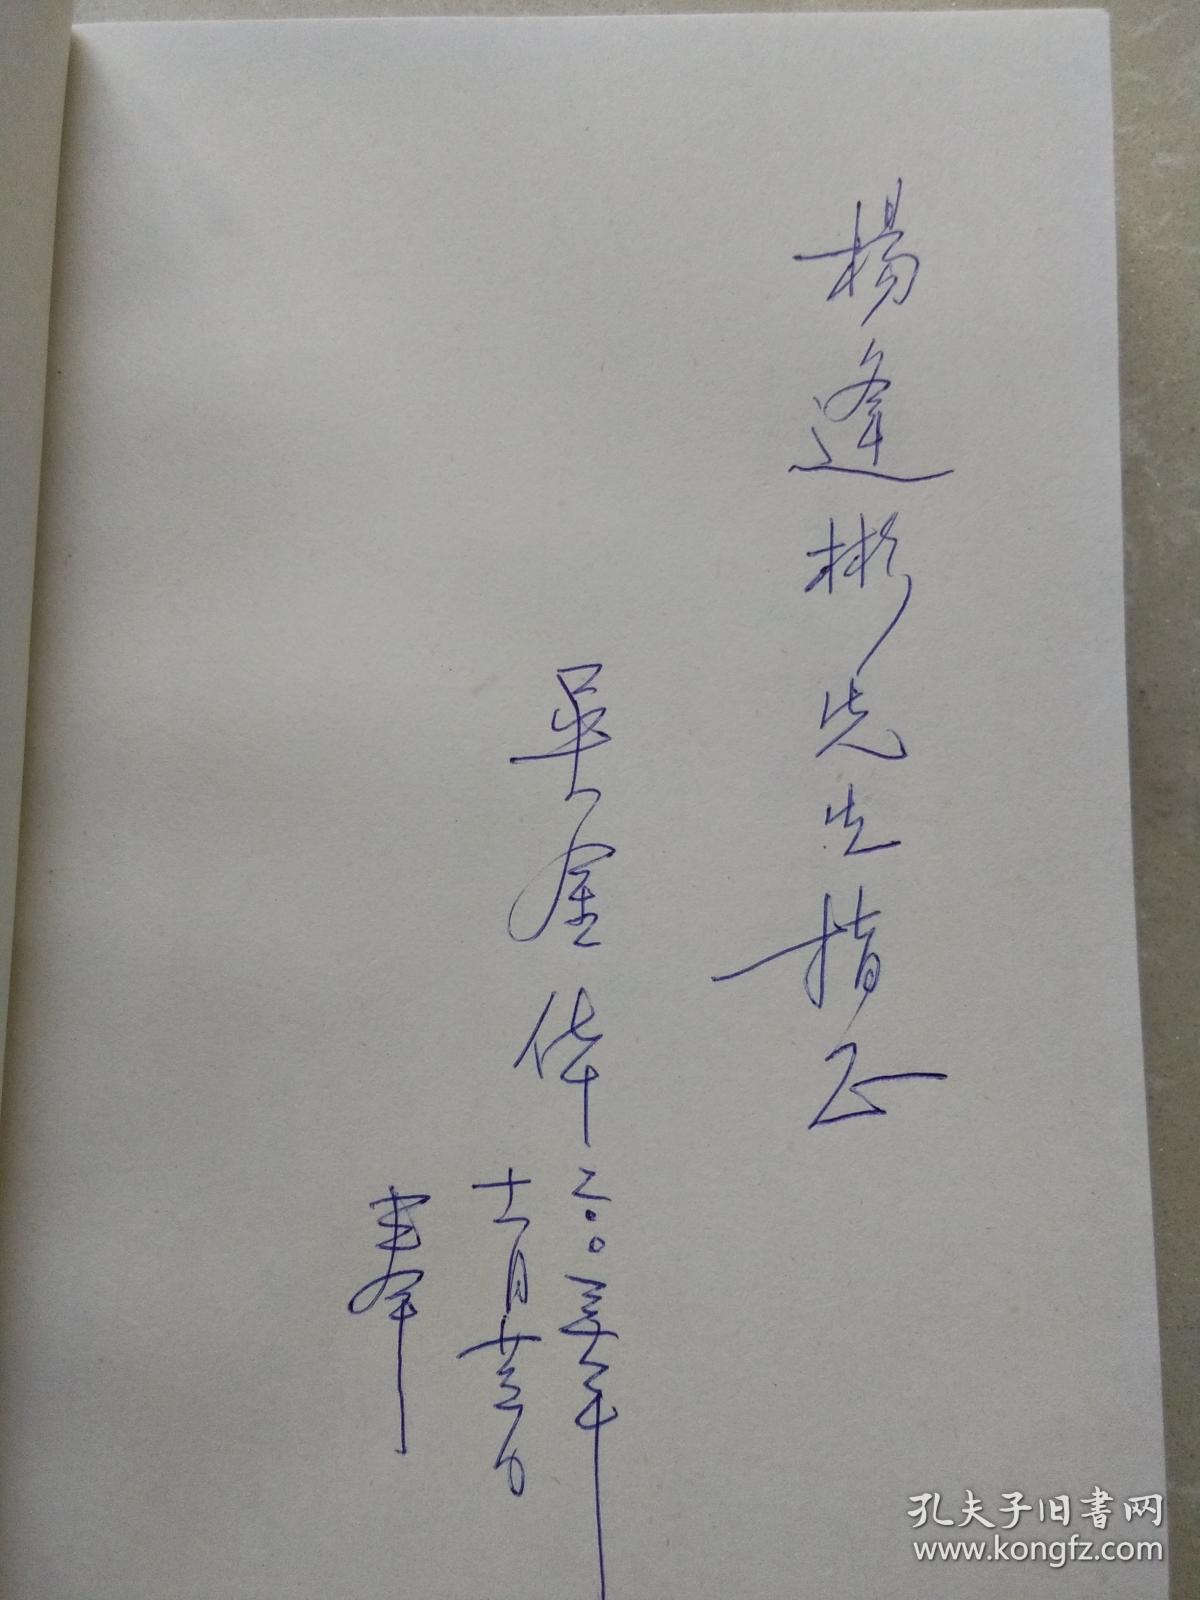 楊逢彬先生指正
吴金华
二〇〇三年
十一月廿三日
奉
孔夫子旧书网
www.kongfz.com